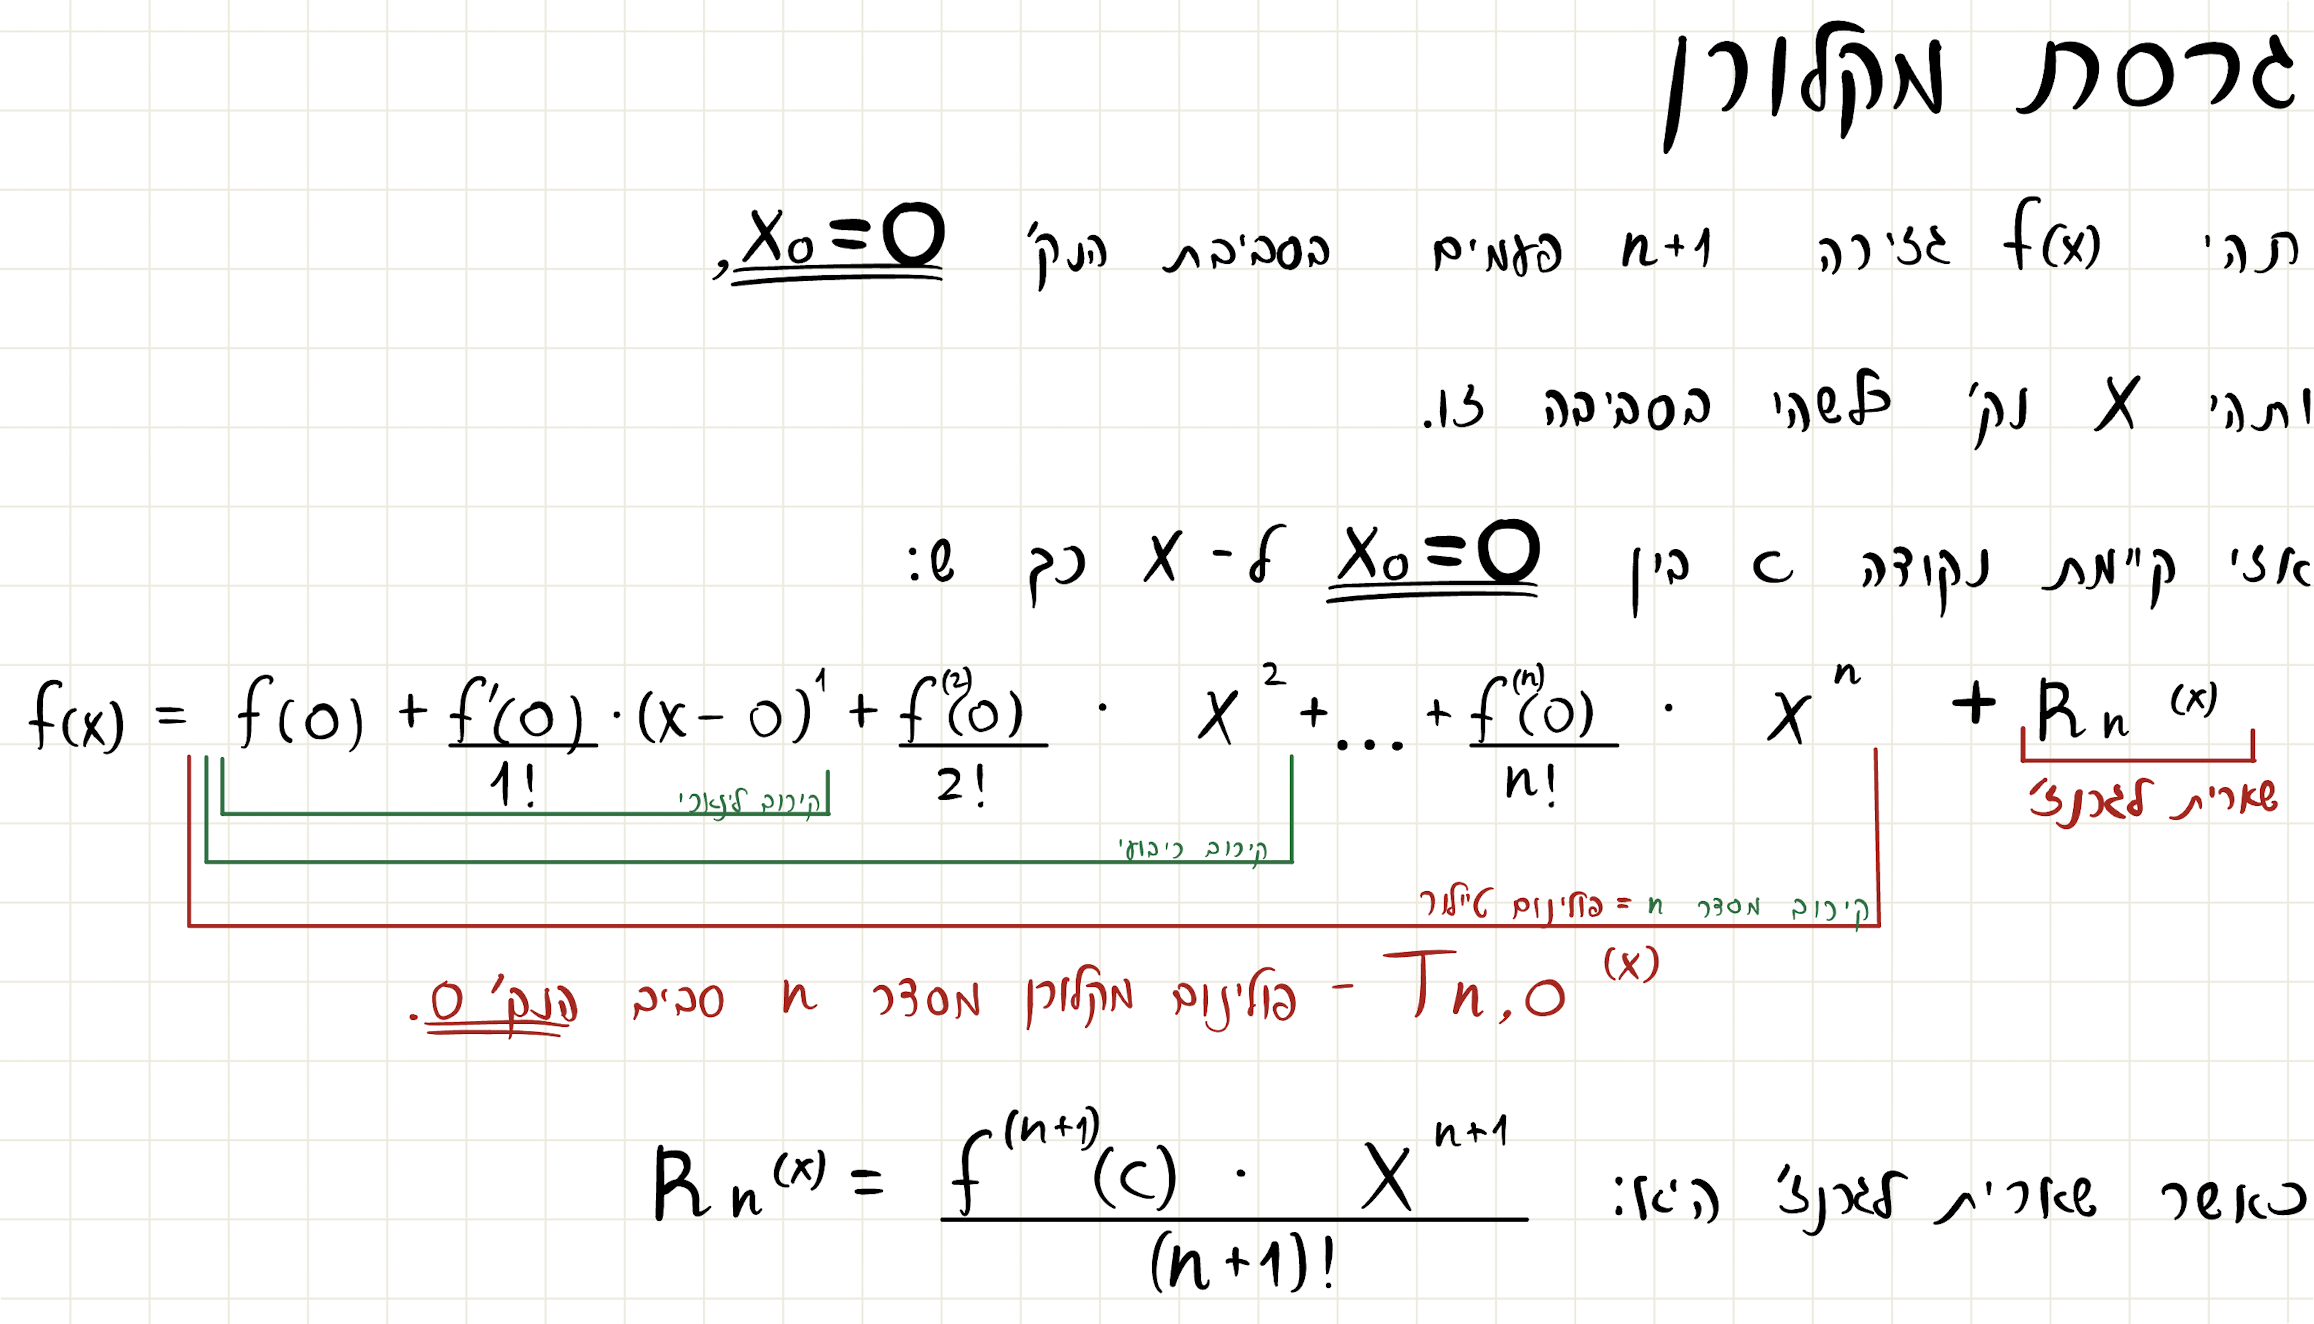 גרסת מקלורן
תהי f(x) גזירה n+1 פעמים בסביבת הנק' x₀=0,
ותהי x נק' כלשהי בסביבה זו.
אזי קיימת נקודה c בין x₀=0 ל-x כך ש:
f(x) = f(0) + f'(0)/1! · (x-0)¹ + f⁽²⁾(0)/2! · x² + ... + f⁽ⁿ⁾(0)/n! · xⁿ + Rₙ(x)
קירוב לינארי
שארית לגרנז'
קירוב ריבועי
קירוב מסדר n = פולינום טיילור
Tn,0(x) - פולינום מקלורן מסדר n סביב הנק' 0.
כאשר שארית לגרנז' היא: Rₙ(x) = f⁽ⁿ⁺¹⁾(c) · xⁿ⁺¹ / (n+1)!